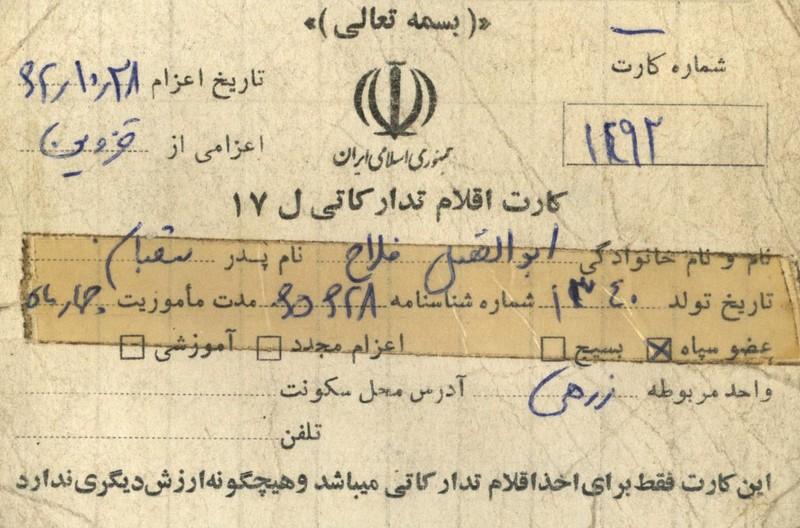 «( بسمه تعالی )»
شماره کارت
۱۴۹۲
جمهوری اسلامی ایران
تاریخ اعزام ۶۲/۱۰/۲۸
اعزامی از قزوین
کارت اقلام تدارکاتی ل ۱۷
نام و نام خانوادگی ابوالفضل فلاح نام پدر شعبان
تاریخ تولد ۱۳۴۰ شماره شناسنامه مدت مأموریت چهار ماه
عضو سپاه ☒ بسیج ☐ اعزام مجدد ☐ آموزشی ☐
واحد مربوطه زرهی آدرس محل سکونت
تلفن
این کارت فقط برای اخذ اقلام تدارکاتی میباشد وهیچگونه ارزش دیگری ندارد